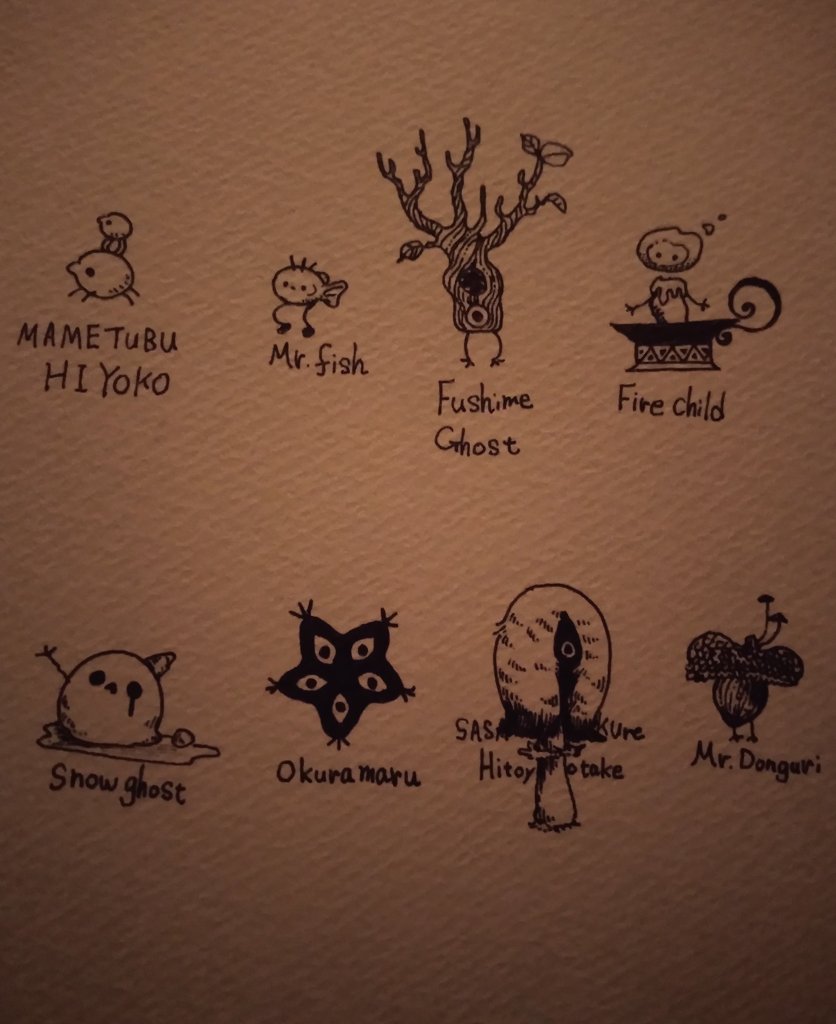 MAMETUBU
HIYOKO
Mr. fish
Fushime
Ghost
Fire child
Snow ghost
Okuramaru
Mr. Donguri